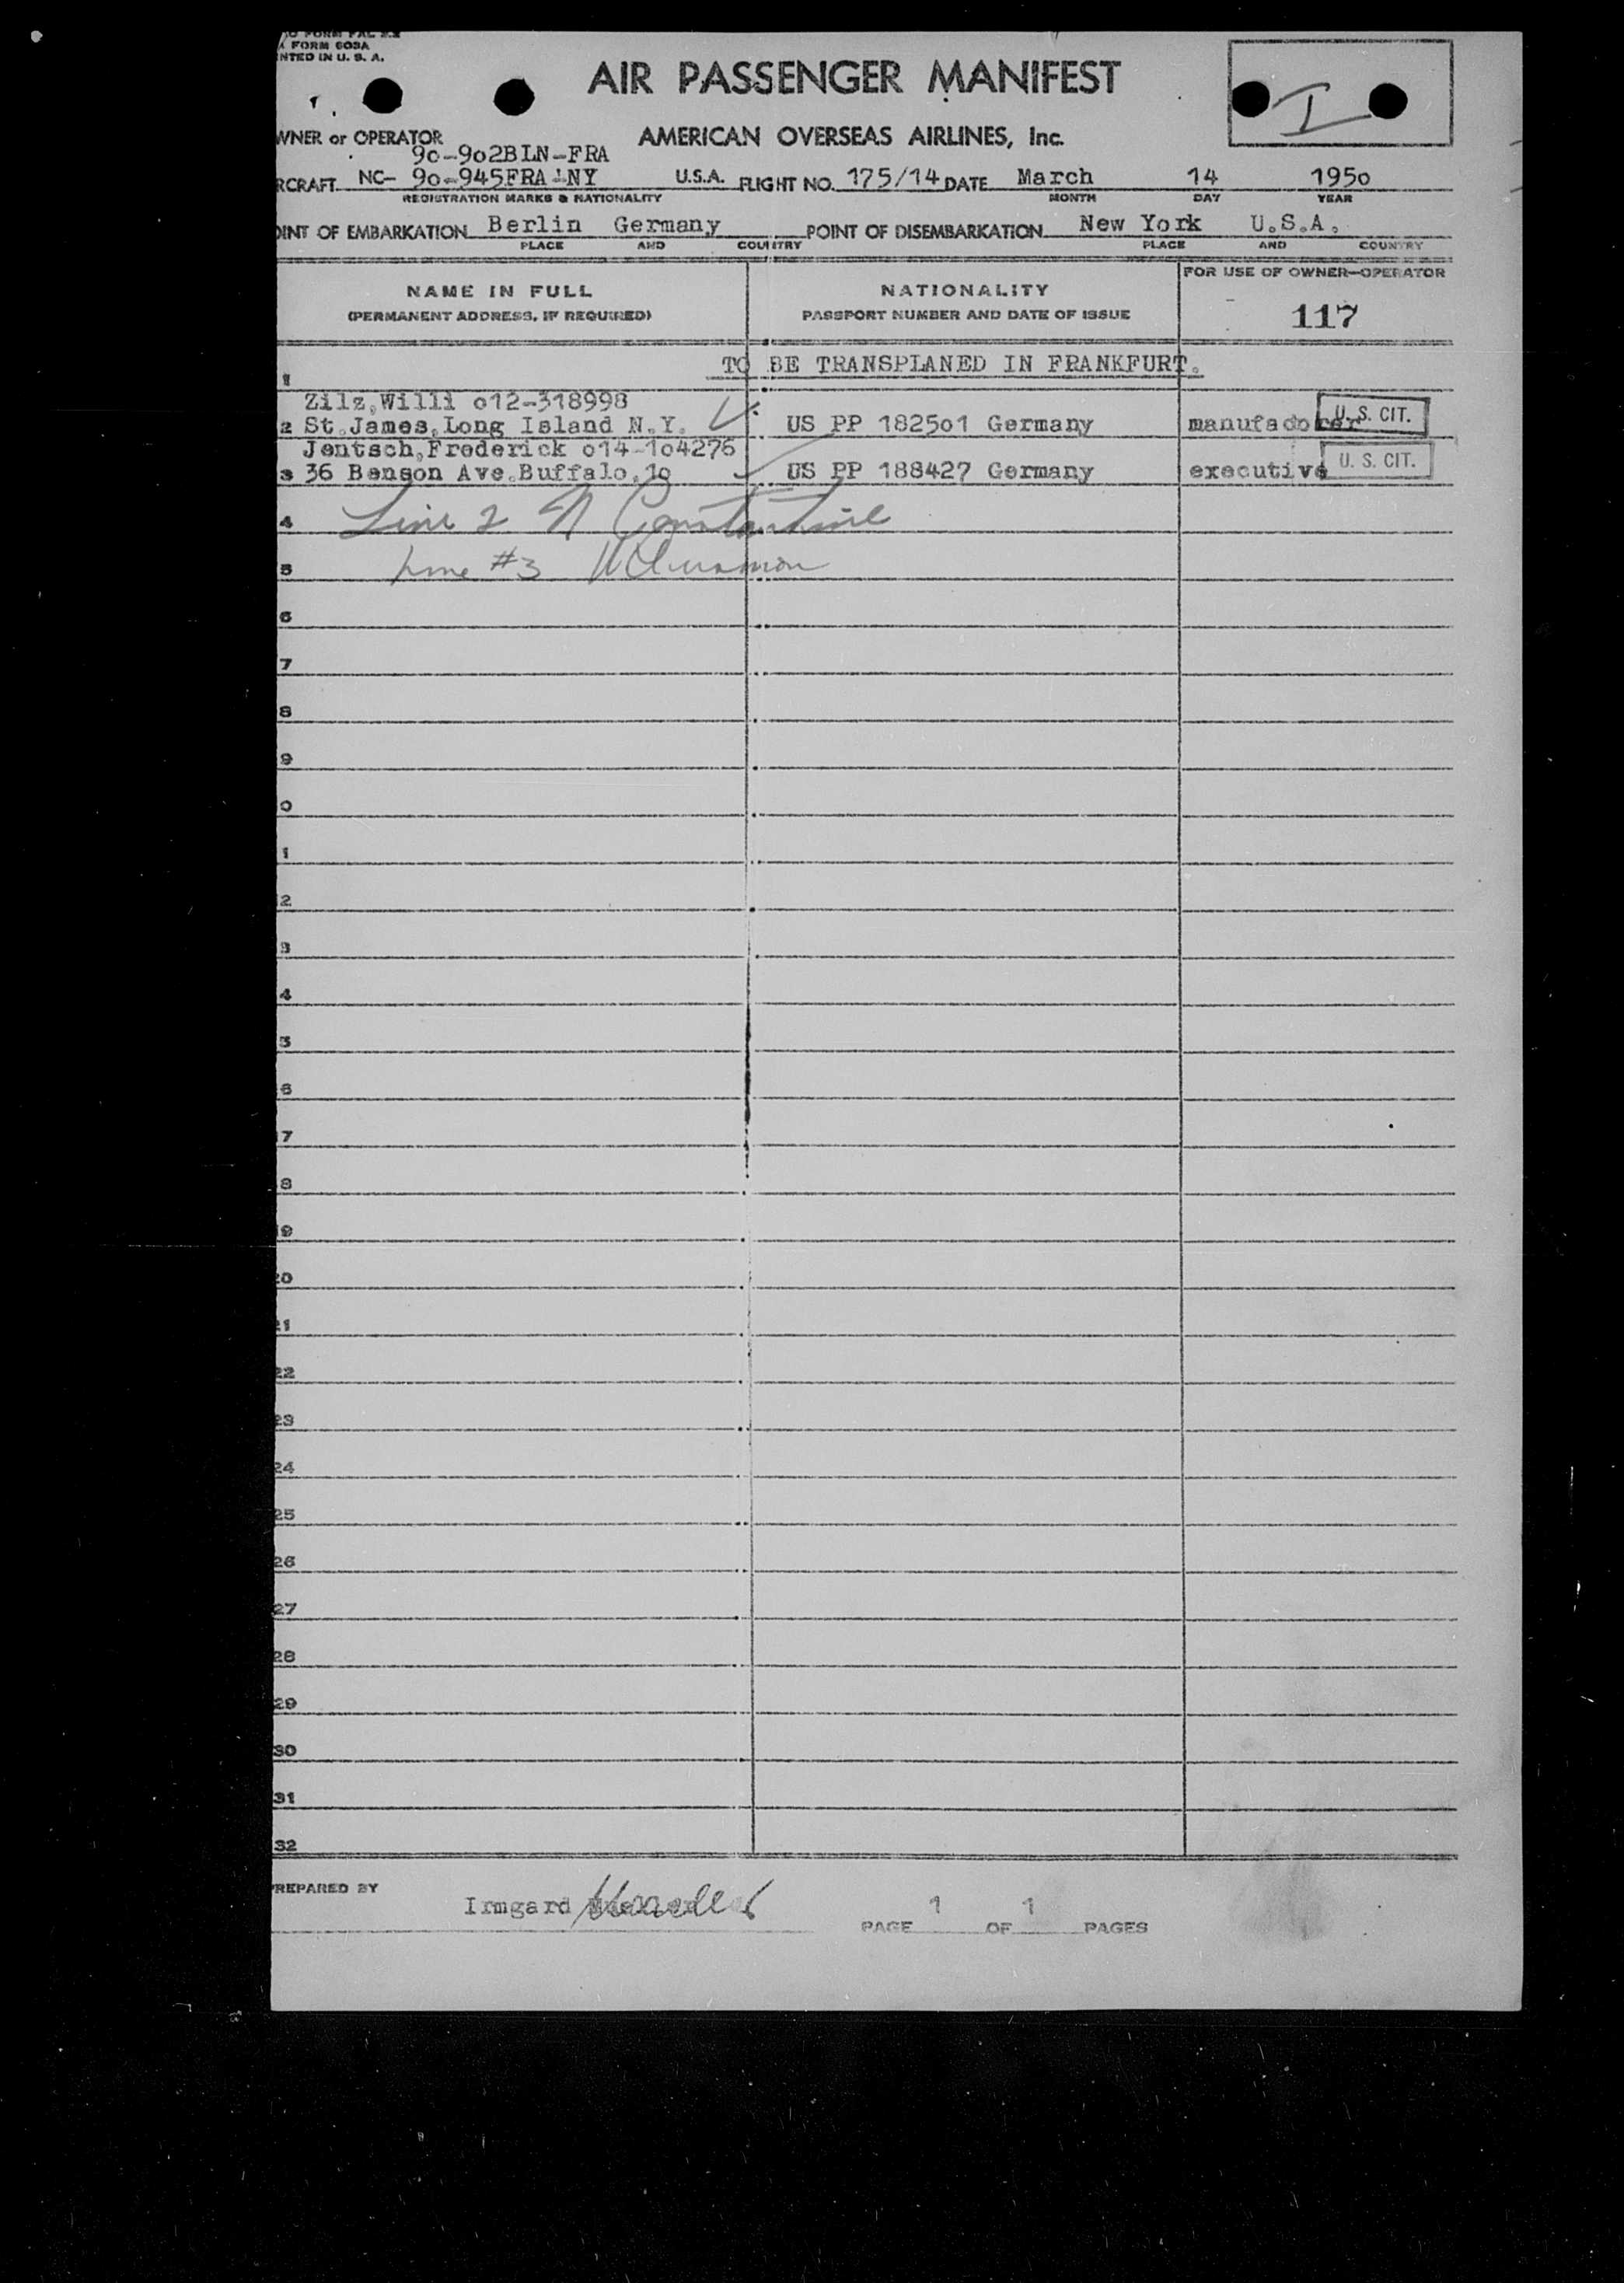 FORM 608A
NTED IN U. S. A.
AIR PASSENGER MANIFEST
I
WNER or OPERATOR AMERICAN OVERSEAS AIRLINES, Inc.
90-902BLN-FRA
RCRAFT NC- 90-945FRA-NY U.S.A. FLIGHT NO. 175/14 DATE March 14 1950
REGISTRATION MARKS & NATIONALITY MONTH DAY YEAR
OINT OF EMBARKATION Berlin Germany POINT OF DISEMBARKATION New York U.S.A.
PLACE AND COUNTRY PLACE AND COUNTRY
NAME IN FULL NATIONALITY FOR USE OF OWNER-OPERATOR
(PERMANENT ADDRESS, IF REQUIRED) PASSPORT NUMBER AND DATE OF ISSUE 117
1 TO BE TRANSPLANED IN FRANKFURT.
Zilz,Willi o12-318998
2 St.James,Long Island N.Y. US PP 182501 Germany U. S. CIT.
Jentsch,Frederick o14-104276
3 36 Benson Ave.Buffalo,10 US PP 188427 Germany executive U. S. CIT.
4 Line 2 N Constantine
5 Line #3
6
7
8
9
0
1
2
3
4
5
6
7
8
19
20
21
22
23
24
25
26
27
28
29
30
31
32
PREPARED BY
Irmgard
PAGE 1 OF 1 PAGES